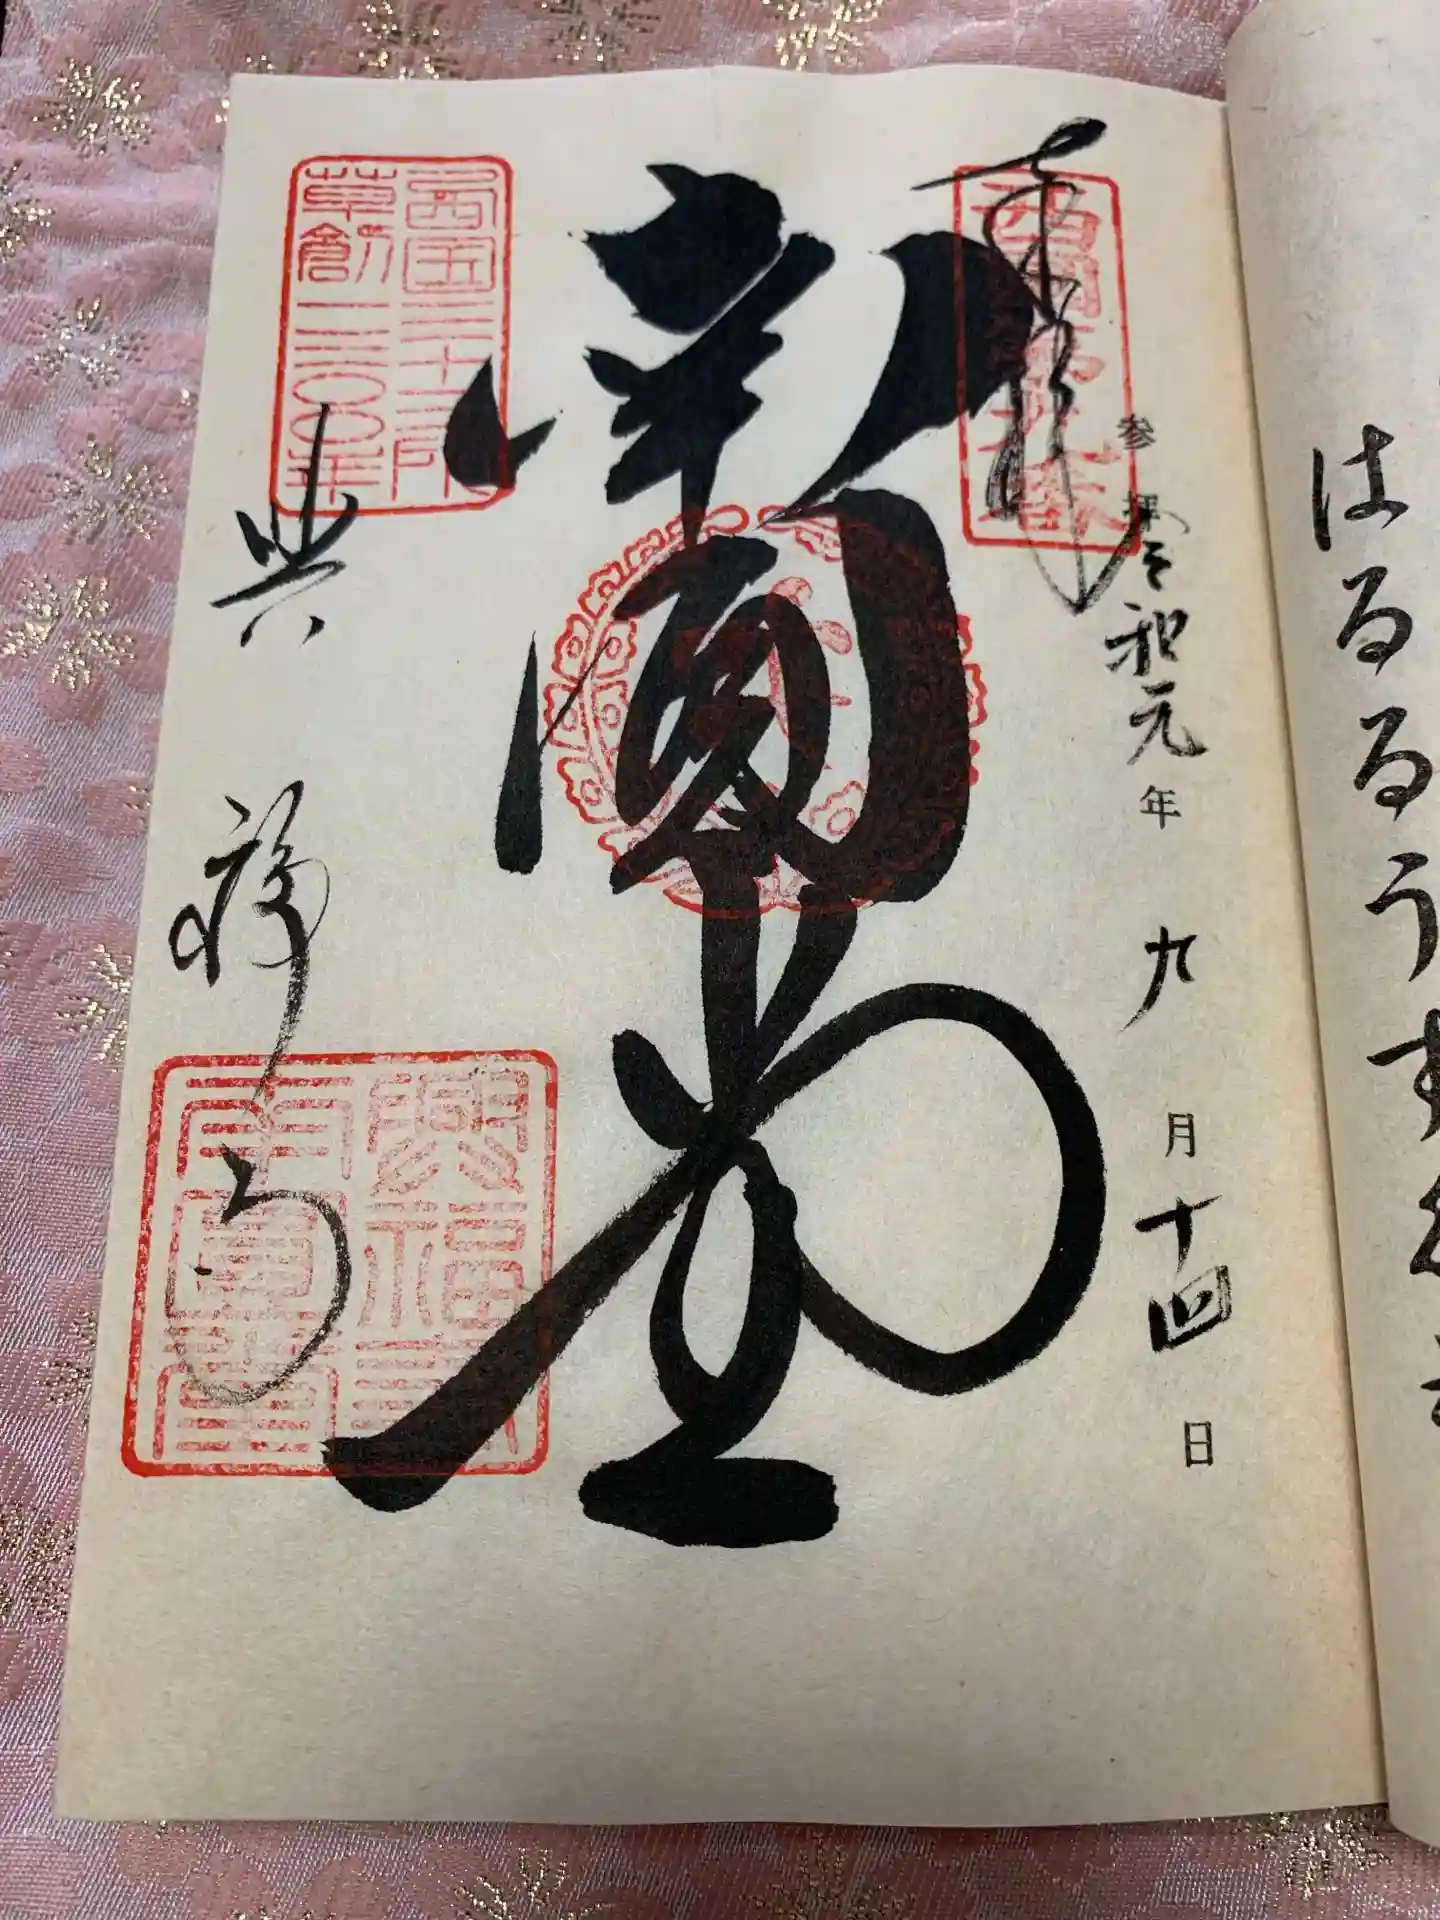 はるるうす
奉拝
参拝 令和元年九月十四日
西国第九番
南円堂
西国三十三所
草創一三〇〇年
興福寺
興福寺
南円堂